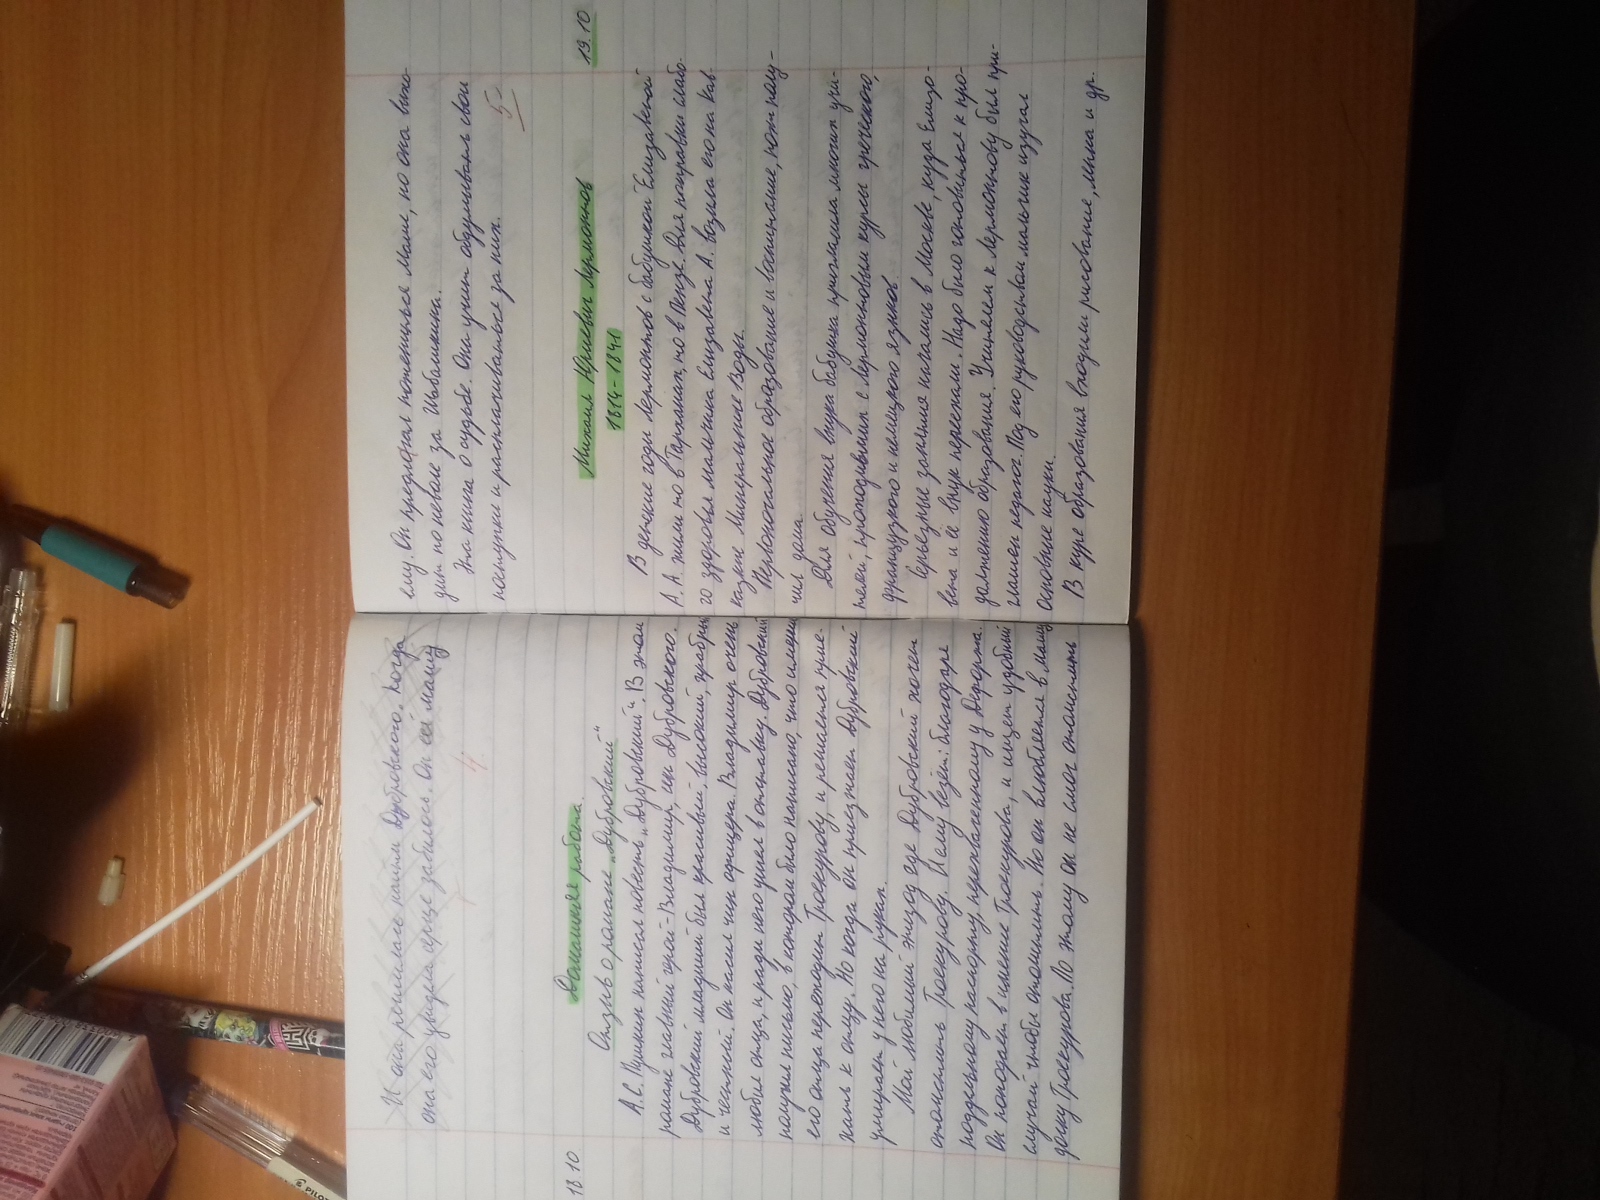 И она решилась найти Дубровского. Когда
она его увидела серце забилось. Он ей машу
4.
18.10
Домашняя работа.
Отзыв о романе „Дубровский“
А.С. Пушкин написал повесть „Дубровский“. В этом
романе главный герой - Владимир, сын Дубровского.
Дубровский младший был красивый, высокий, храбрый
и честный. Он имел чин офицера. Владимир очень
любил отца, и ради него ушел в отставку. Дубровский
получил письмо, в котором было написано, что имение
его отца переходит Троекурову, и решается прие-
хать к отцу. Но когда он приезжает Дубровский
умирает у него на руках.
Мой любимый эпизод где Дубровский хочет
отомстить Троекурову. И ему везет: благодаря
поддельному паспорту, перехваченному у Дефоржа.
Он попадает в имение Троекурова, и ищет удобный
случай чтобы отомстить. Но он влюбляется в Машу
дочку Троекурова. По этому он не смог отомстить
ему. Он предложил пожениться Маше, но она выхо-
дит по неволе за Шабашкина.
Эта книга о судьбе. Она учит обдумывать свои
поступки и расплачиваться за них.
5-
19.10
Михаил Юрьевич Лермонтов
1814-1841
В детские годы Лермонтов с бабушкой Елизаветой
А. А. жили то в Тарханах, то в Пензе. Для поправки слабо-
го здоровья мальчика Елизавета А. возила его на Кав-
казкие Минеральные Воды.
Первоначальное образование и воспитание, поэт полу-
чил дома.
Для обучения внука бабушка пригласила многих учи-
телей, проходивших с Лермонтовым курсы греческого,
французкого и немецкого языков.
Серьезные занятия начались в Москве, куда Елиза-
вета и её внук переехали. Надо было готовиться к про-
должению образования. Учителем к Лермонтову был при-
глашен педагог. Под его руководством мальчик изучал
основные науки.
В курс образования входили рисование, лепка и др.
PILOT